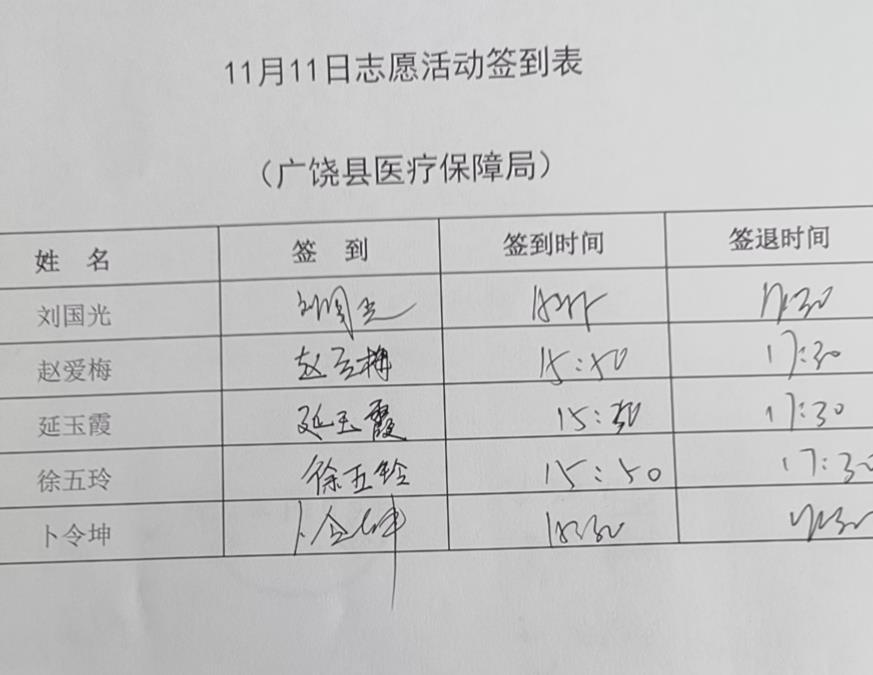 11月11日志愿活动签到表
（广饶县医疗保障局）
姓 名 签 到 签到时间 签退时间
刘国光 刘国光 17:30
赵爱梅 赵爱梅 15:50 17:30
延玉霞 延玉霞 15:50 17:30
徐五玲 徐五玲 15:50 17:30
卜令坤 卜令坤 17:30